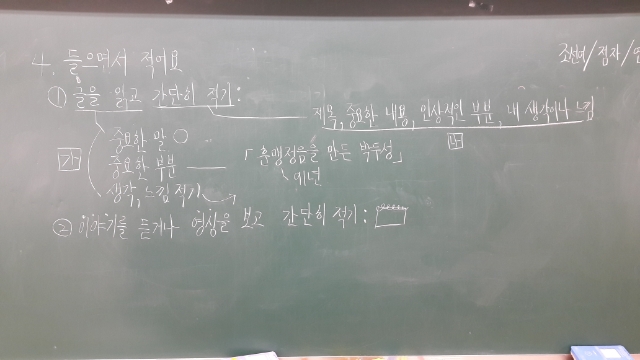 4. 들으면서 적어요
조선어/점자/
① 글을 읽고 간단히 적기:
제목, 중요한 내용, 인상적인 부분, 내 생각이나 느낌
중요한 말
가
중요한 부분
「훈맹정음을 만든 박두성」
나
생각, 느낌 적기
② 이야기를 듣거나 영상을 보고 간단히 적기: